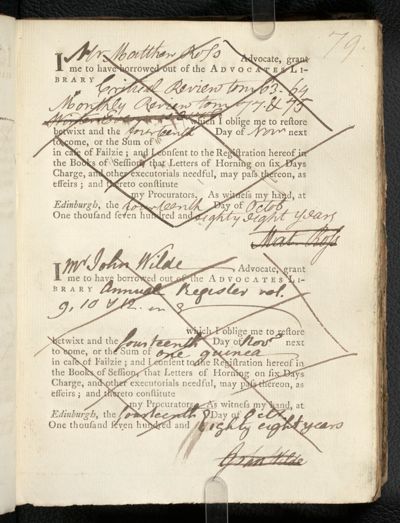 79.
I Mr Matthew Ross Advocate, grant
me to have borrowed out of the ADVOCATES LI-
BRARY Critical Review tom 63. 64
Monthly Review tom 77 & 75
which I oblige me to restore
betwixt and the fourteenth Day of Novr next
to come, or the Sum of
in case of Failzie; and I consent to the Registration hereof in
the Books of Session, that Letters of Horning on six Days
Charge, and other executorials needful, may pass thereon, as
effeirs; and thereto constitute
my Procurators. As witness my hand, at
Edinburgh, the fourteenth Day of Octor
One thousand seven hundred and eighty eight years
Mat. Ross
I Mr John Wilde Advocate, grant
me to have borrowed out of the ADVOCATES LI-
BRARY Annual Register vol.
9, 10 & 12. in 8
which I oblige me to restore
betwixt and the fourteenth Day of Novr next
to come, or the Sum of one guinea
in case of Failzie; and I consent to the Registration hereof in
the Books of Session, that Letters of Horning on six Days
Charge, and other executorials needful, may pass thereon, as
effeirs; and thereto constitute
my Procurators. As witness my hand, at
Edinburgh, the fourteenth Day of Octr
One thousand seven hundred and eighty eight years
John Wilde